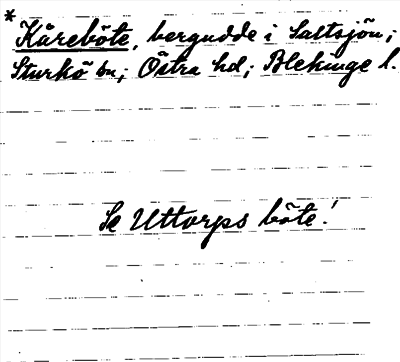 * Kårebôte, bergudde i Saltsjön;
Sturkö sn; Östra hd; Blekinge l.
Se Uttorps bôte!